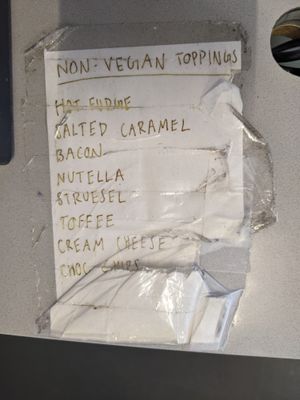 NON-VEGAN TOPPINGS
HOT FUDGE
SALTED CARAMEL
BACON
NUTELLA
STRUESEL
TOFFEE
CREAM CHEESE
CHOC CHIPS